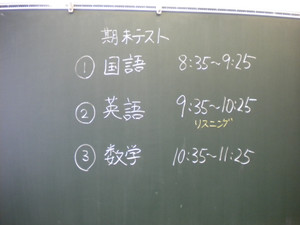 期末テスト
① 国語 8:35~9:25
② 英語 9:35~10:25
リスニング
③ 数学 10:35~11:25